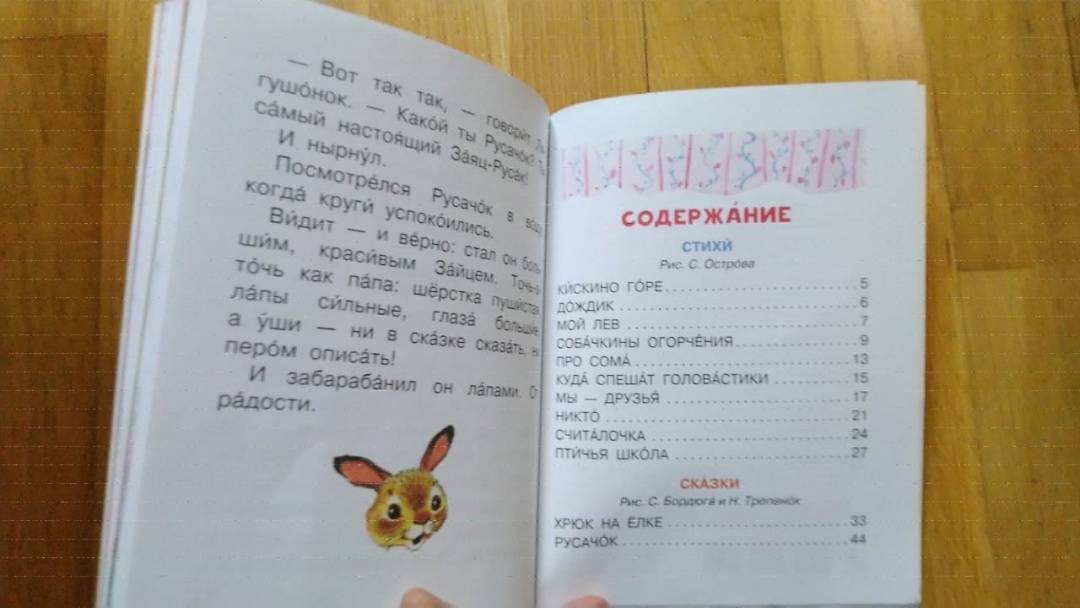 — Вот так так, — говори́т
гушо́нок. — Како́й ты Русачо́к?
са́мый настоя́щий За́яц-Руса́к!
И нырну́л.
Посмотре́лся Русачо́к в
когда́ круги́ успоко́ились.
Ви́дит — и ве́рно: стал он боль-
ши́м, краси́вым За́йцем. Точь-в-
то́чь как па́па: шёрстка пуши́стая,
ла́пы си́льные, глаза́ больши́е,
а у́ши — ни в ска́зке сказа́ть, ни
перо́м описа́ть!
И забараба́нил он ла́пами. От
ра́дости.
СОДЕРЖА́НИЕ
СТИХИ́
Рис. С. Остро́ва
КИ́СКИНО ГО́РЕ 5
ДО́ЖДИК 6
МОЙ ЛЕВ 7
СОБА́ЧКИНЫ ОГОРЧЕ́НИЯ 9
ПРО СОМА́ 13
КУДА́ СПЕША́Т ГОЛОВА́СТИКИ 15
МЫ — ДРУЗЬЯ́ 17
НИКТО́ 21
СЧИТА́ЛОЧКА 24
ПТИ́ЧЬЯ ШКО́ЛА 27
СКА́ЗКИ
Рис. С. Бордюга́ и Н. Трепено́к
ХРЮК НА ЁЛКЕ 33
РУСАЧО́К 44